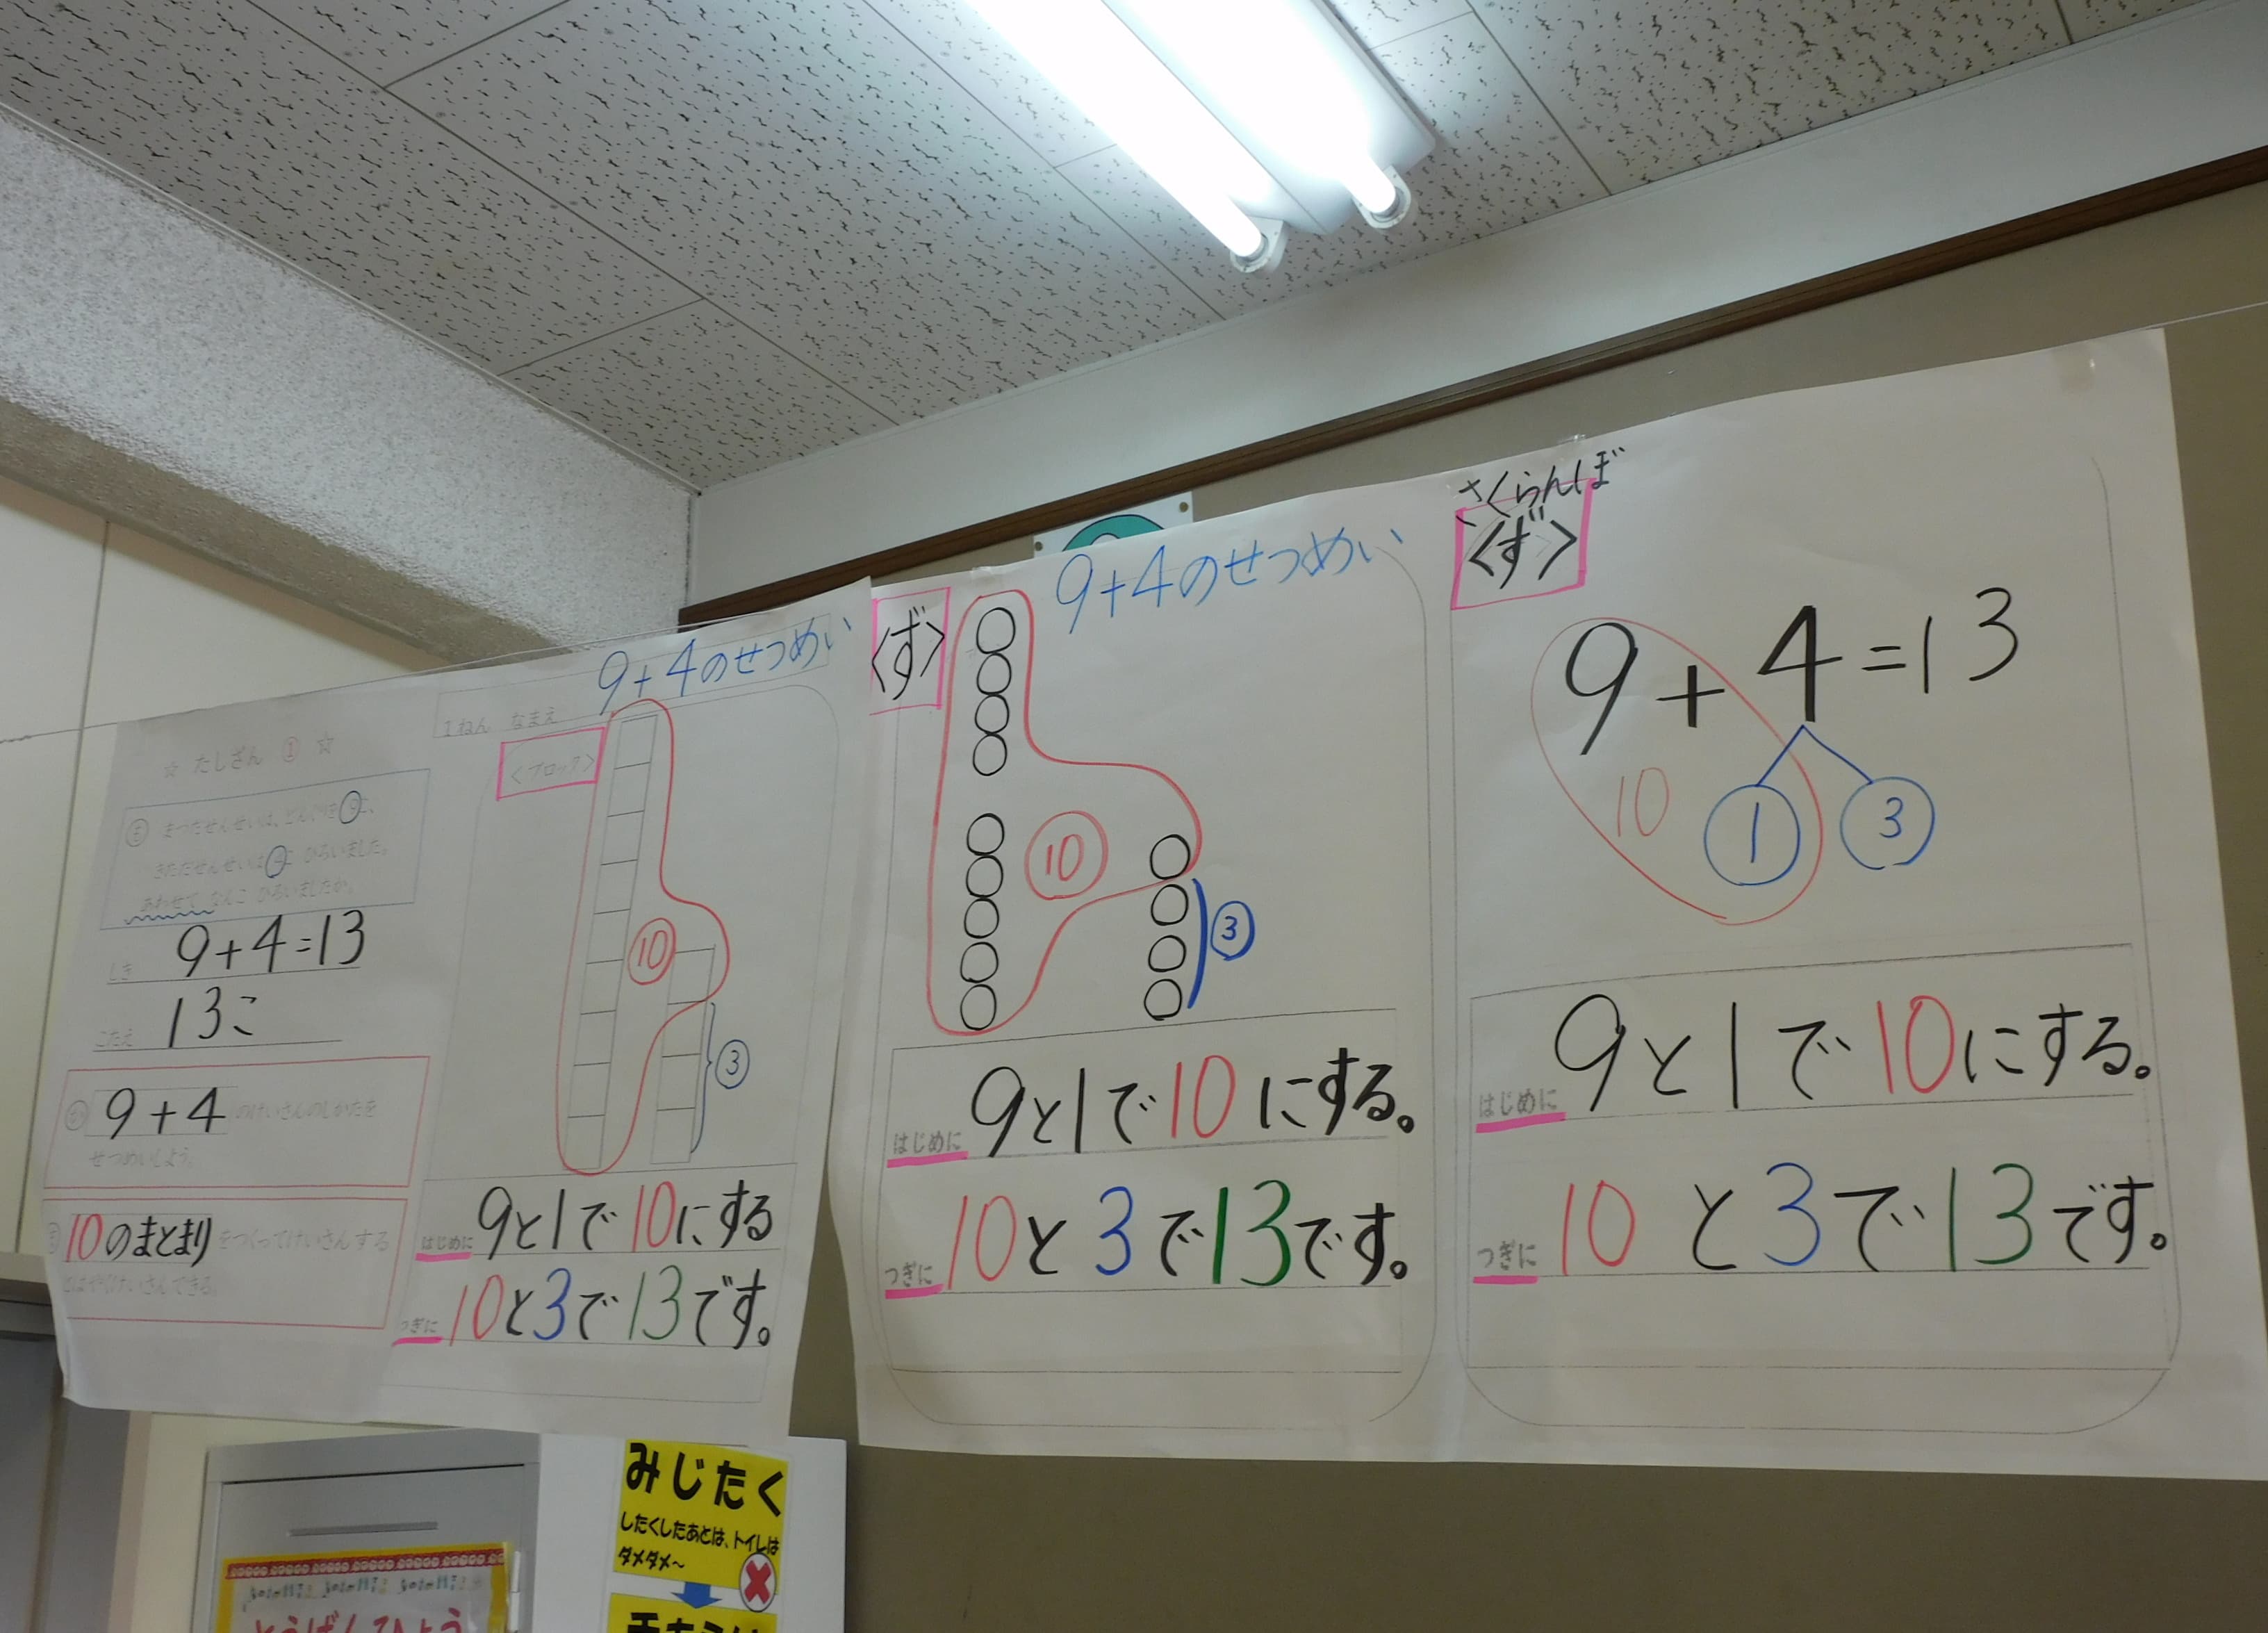 ☆ たしざん ① ☆
まつだせんせいは、どんぐりを9こ、
きただせんせいは4こ ひろいました。
あわせて なんこ ひろいましたか。
しき 9+4=13
こたえ 13こ
9+4 のけいさんのしかたを
せつめいしよう。
10のまとまり をつくってけいさんする
とはやくけいさんできる。
1ねん なまえ
9+4のせつめい
<ブロック>
10
3
はじめに 9と1で10にする
つぎに 10と3で13です。
<ず>
9+4のせつめい
10
3
はじめに 9と1で10にする。
つぎに 10と3で13です。
さくらんぼ
<ず>
9+4=13
10
1
3
はじめに 9と1で10にする。
つぎに 10と3で13です。
みじたく
したくしたあとは、トイレは
ダメダメ~